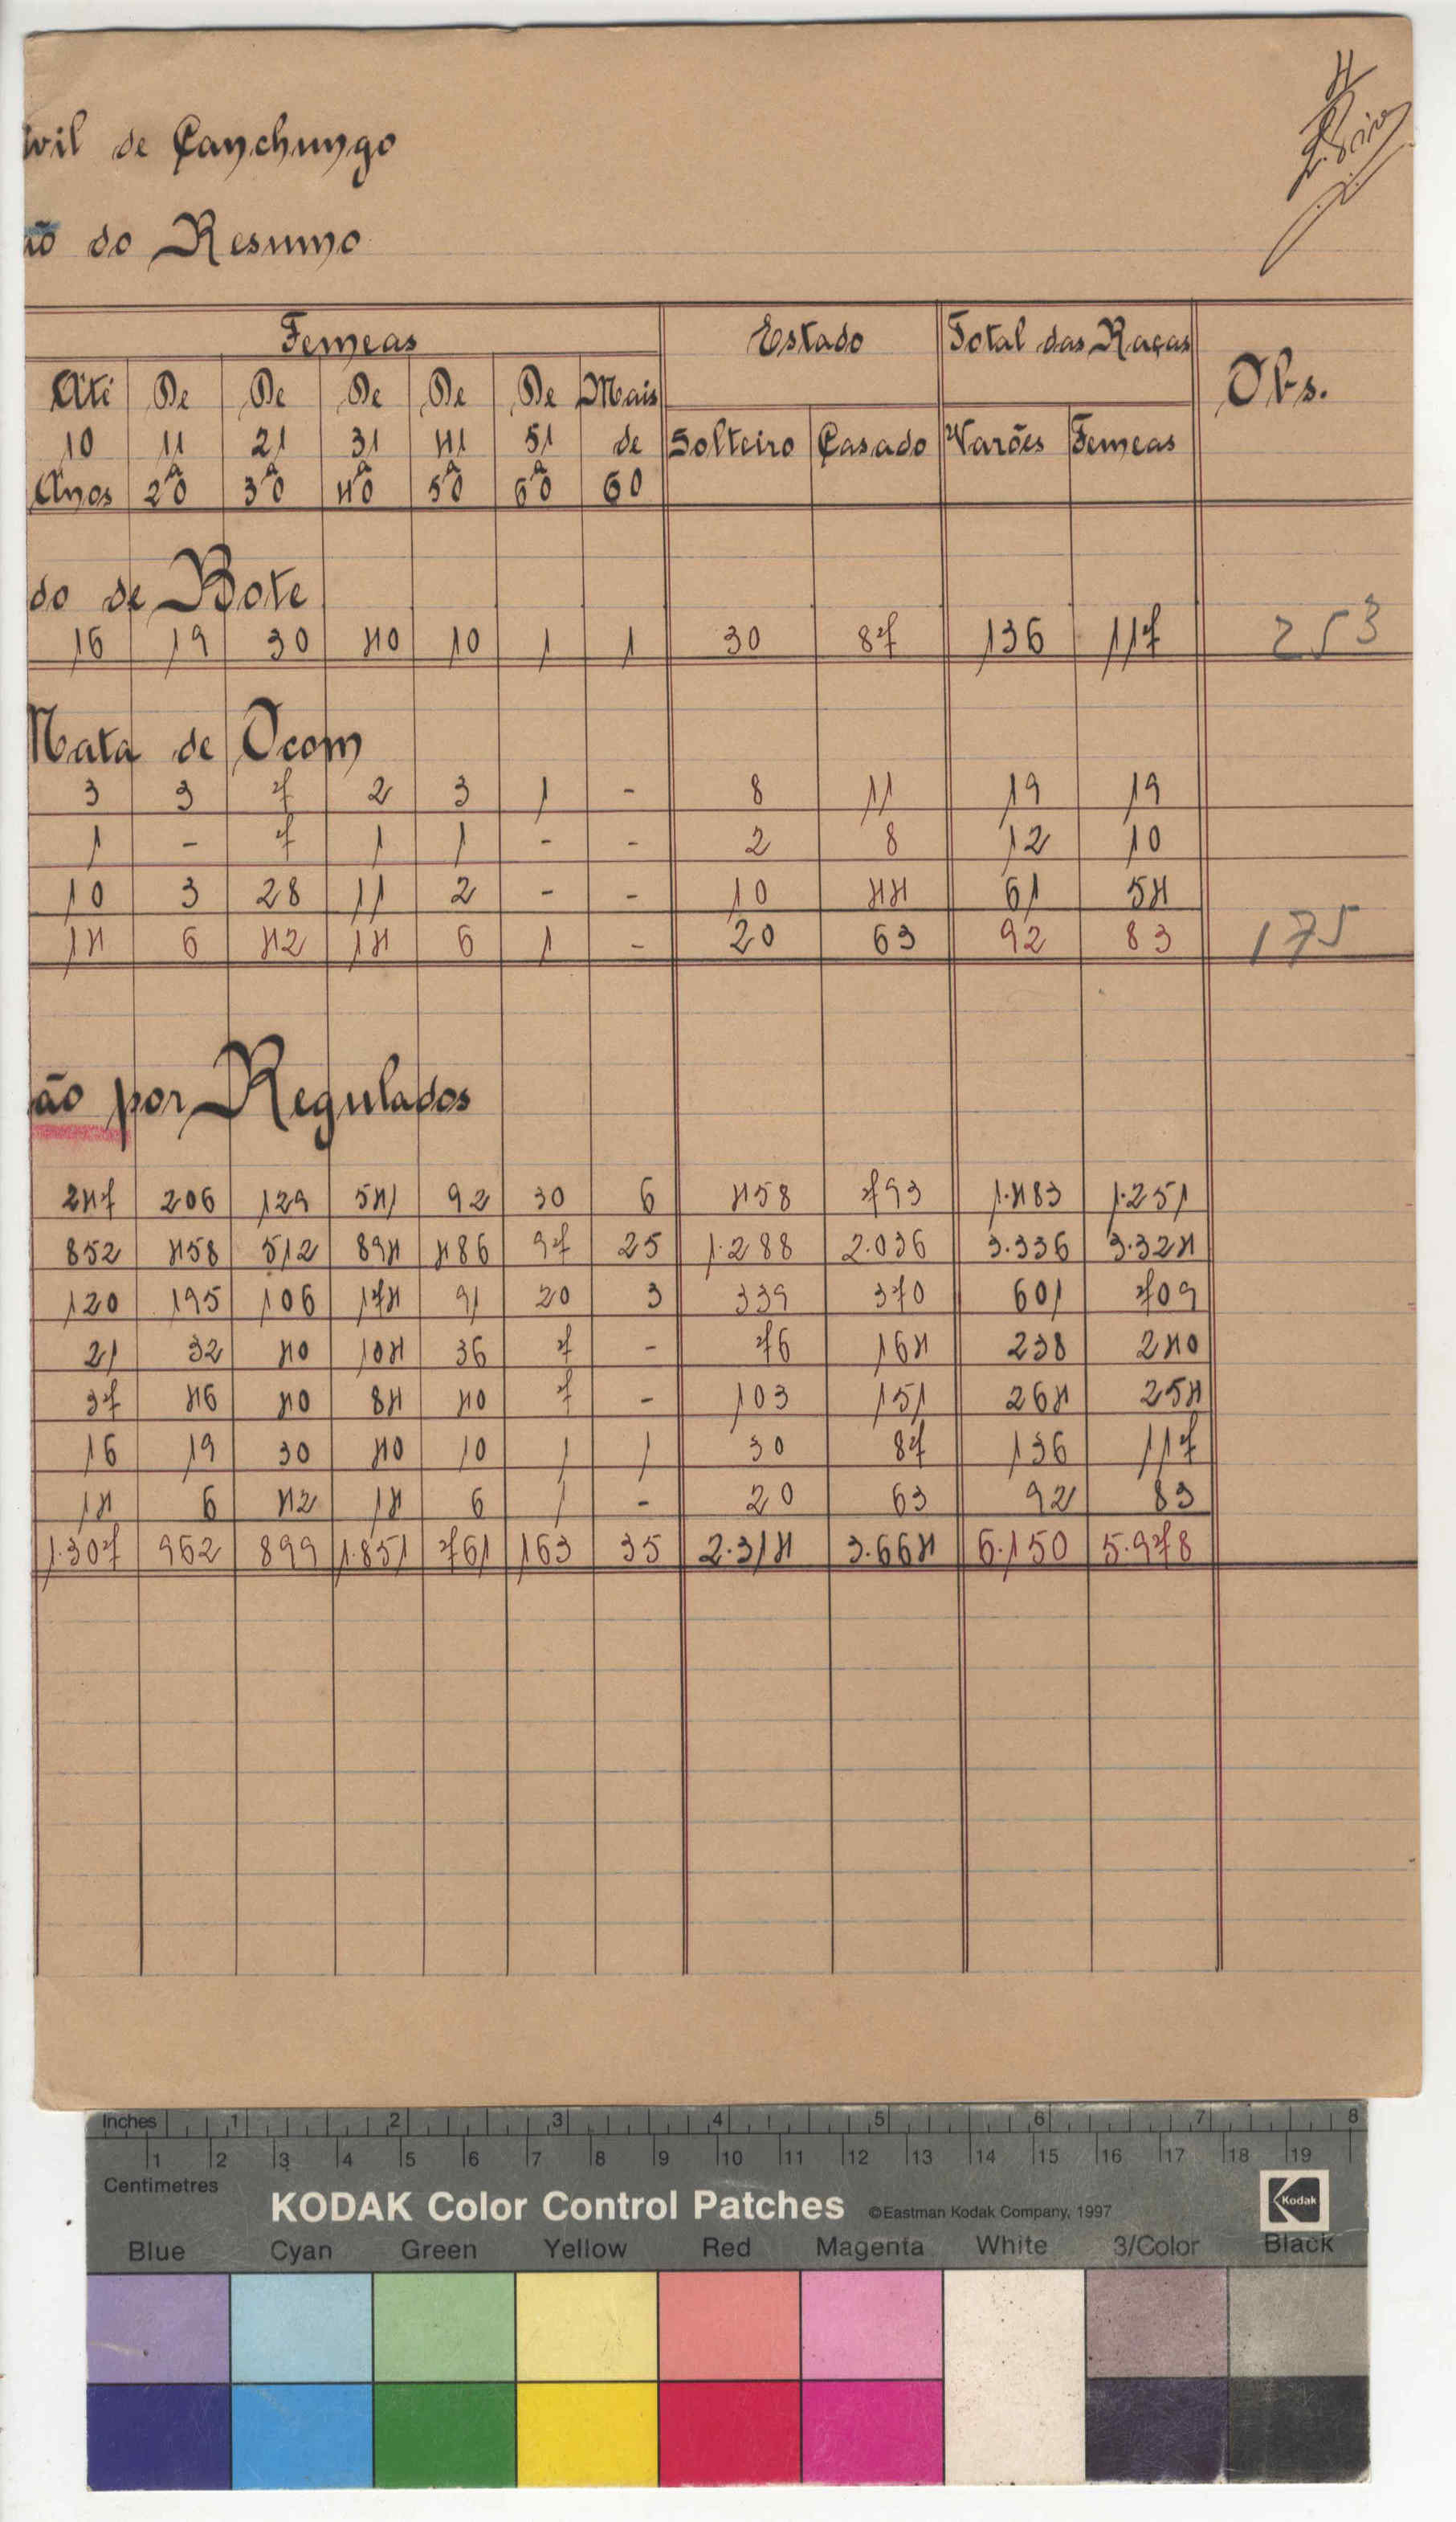 4
wil de Canchungo
ão do Resumo
Femeas Estado Total das Raças Obs.
Até De De De De De Mais
10 11 21 31 41 51 de Solteiro Casado Varões Femeas
Anos a 20 a 30 a 40 a 50 a 60 60
do de Bote
16 19 30 40 10 1 1 30 87 136 117 253
Mata de Ocom
3 3 7 2 3 1 - 8 11 19 19
1 - 7 1 1 - - 2 8 12 10
10 3 28 11 2 - - 10 44 61 54
14 6 42 14 6 1 - 20 63 92 83 175
ão por Regulados
247 206 129 541 92 30 6 458 793 1.483 1.251
852 458 512 894 486 97 25 1.288 2.036 3.336 3.324
120 195 106 174 91 20 3 339 370 601 709
21 32 40 104 36 7 - 76 164 238 240
37 46 40 84 40 7 - 103 151 264 254
16 19 30 40 10 1 1 30 87 136 117
14 6 42 14 6 1 - 20 63 92 83
1.307 962 899 1.851 761 163 35 2.314 3.664 6.150 5.978
Inches 1 2 3 4 5 6 7 8
1 2 3 4 5 6 7 8 9 10 11 12 13 14 15 16 17 18 19
Centimetres
KODAK Color Control Patches ©Eastman Kodak Company, 1997 Kodak
Blue Cyan Green Yellow Red Magenta White 3/Color Black